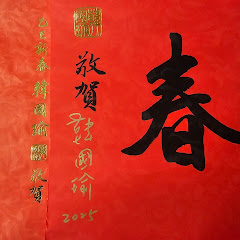 春
敬賀
韓國瑜
2025
乙巳新春 韓國瑜 敬賀